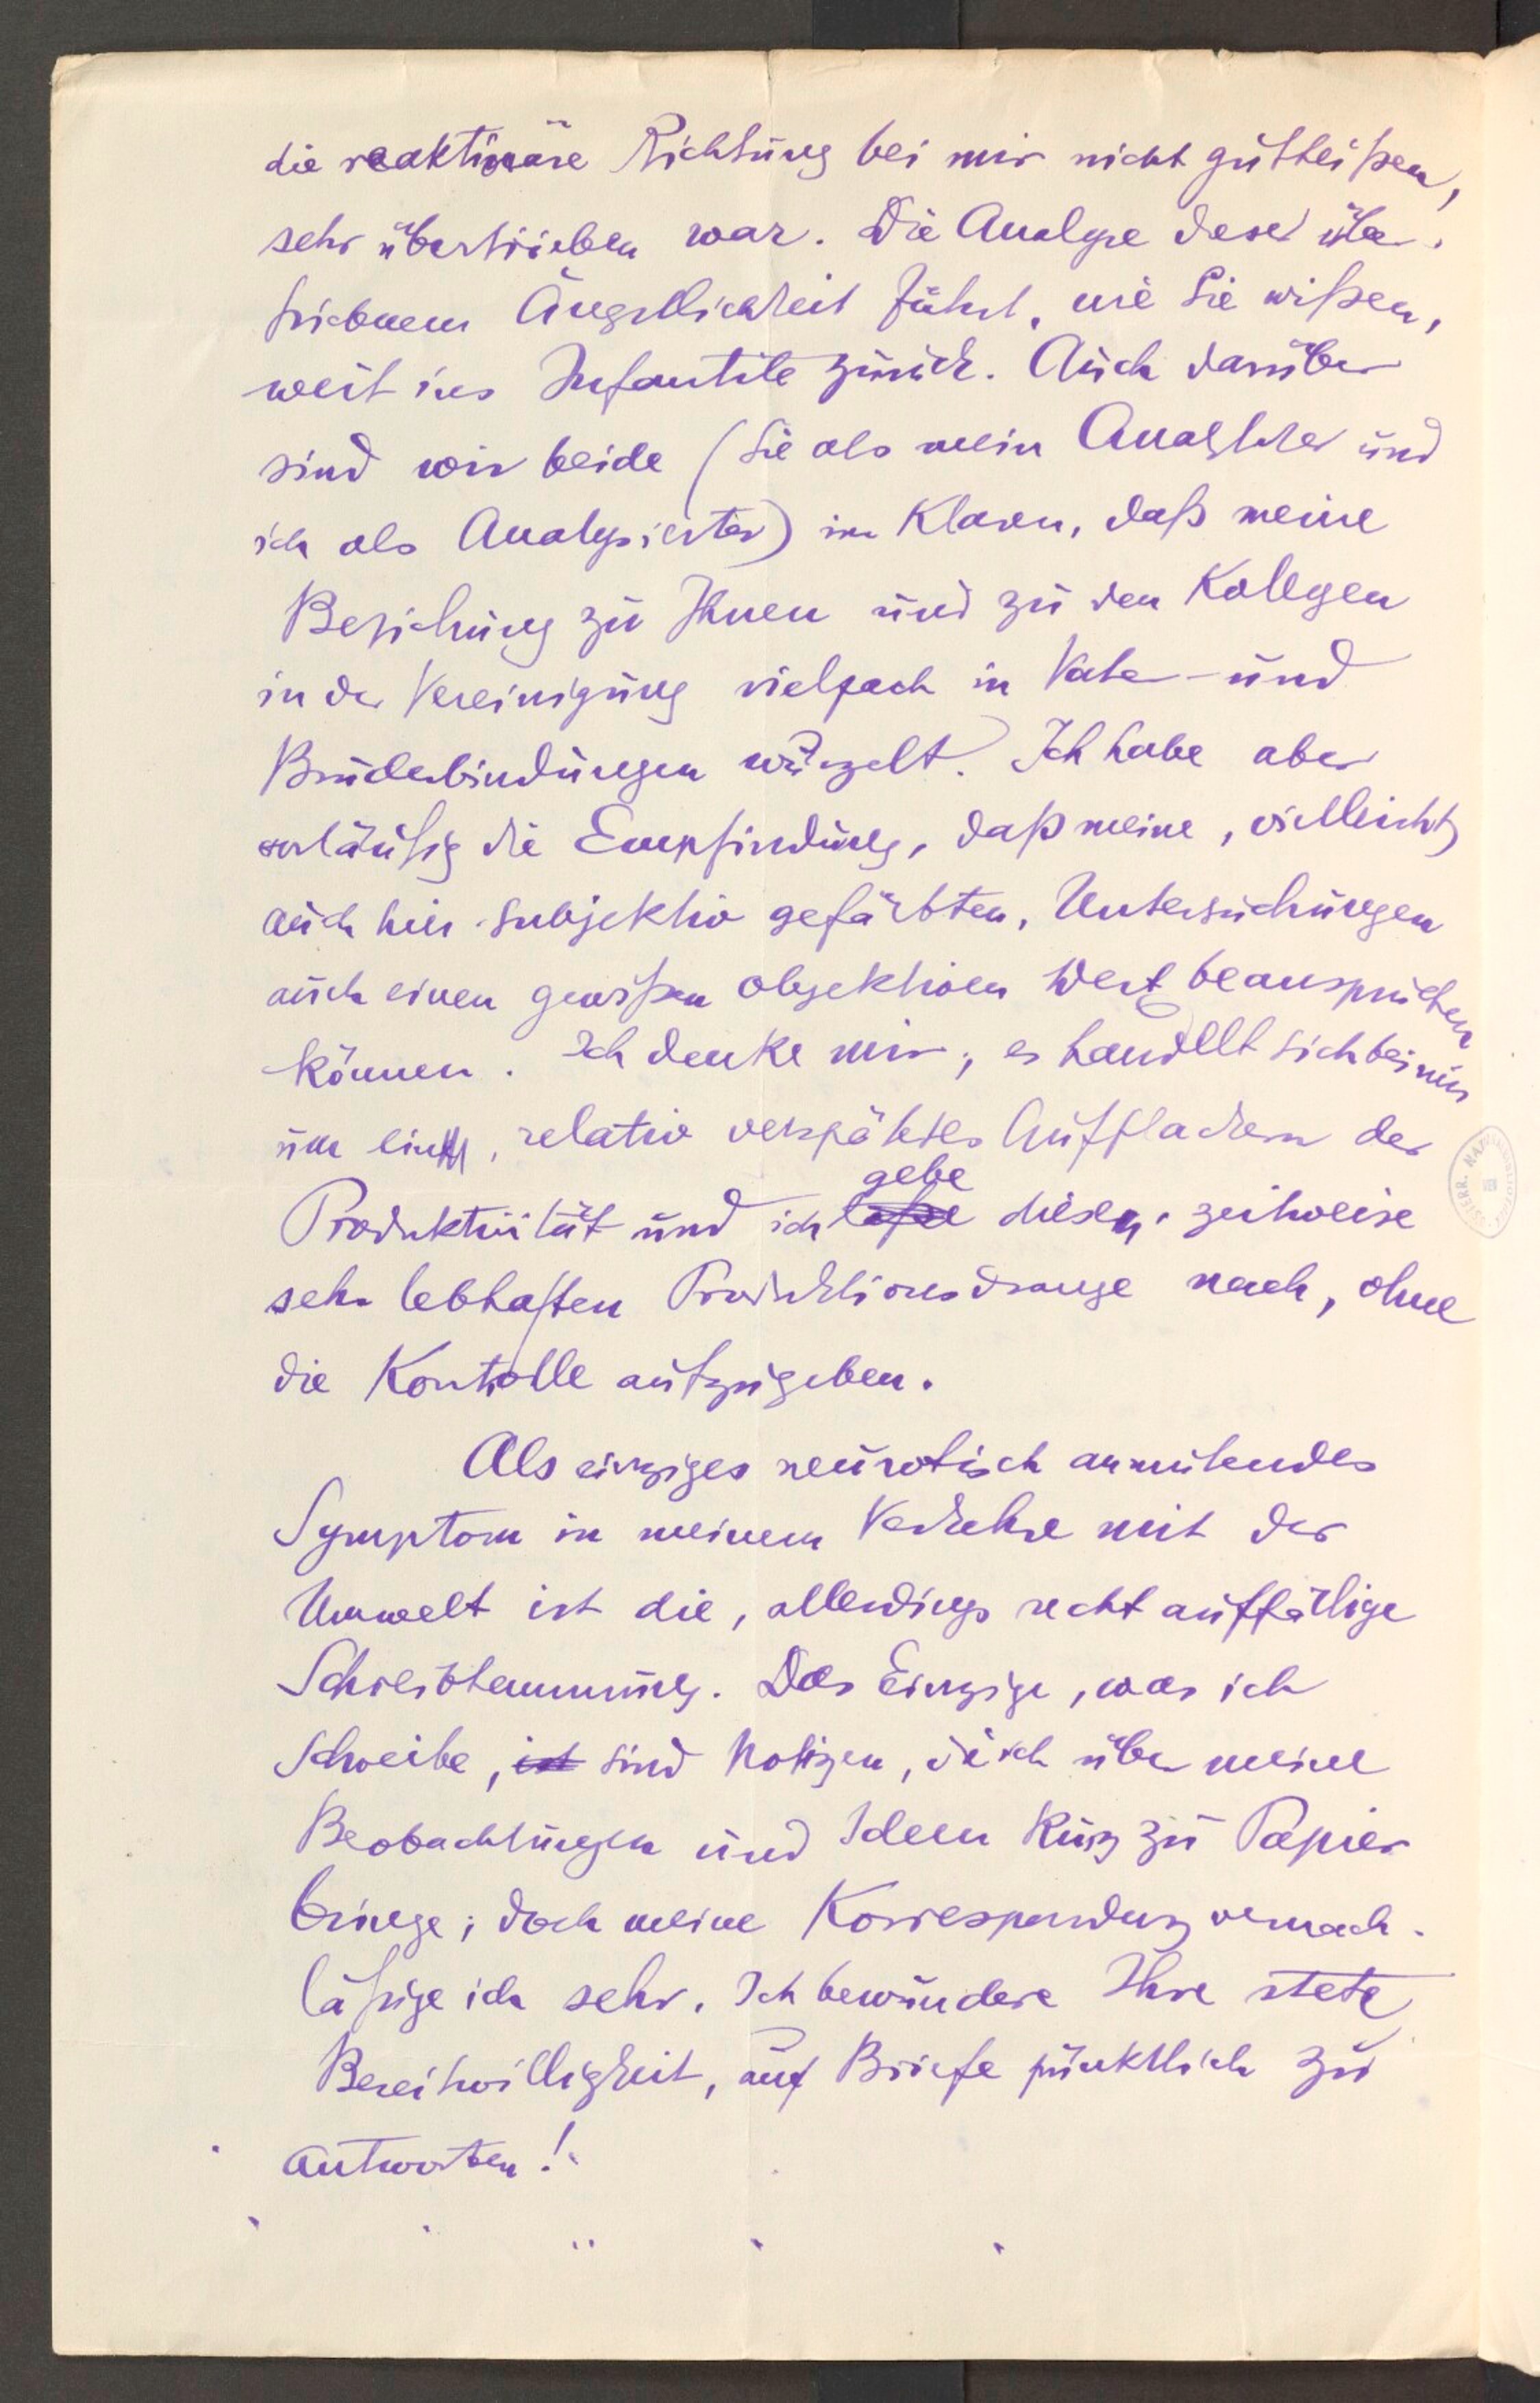 die reaktionäre Richtung bei mir nicht gutheißen,
sehr übertrieben war. Die Analyse dieser über-
triebenen Ängstlichkeit führt, wie Sie wißen,
weit ins Infantile zurück. Auch darüber
sind wir beide (Sie als mein Analytiker und
ich als Analysierter) im Klaren, daß meine
Beziehung zu Ihnen und zu den Kollegen
in der Vereinigung vielfach in Vater- und
Bruderbindungen wurzelt. Ich habe aber
vorläufig die Empfindung, daß meine, vielleicht
auch hier subjektiv gefärbten, Untersuchungen
auch einen gewißen objektiven Wert beanspruchen
können. Ich denke mir, es handelt sich bei mir
um ein, relativ verspätetes Aufflackern der
Produktivität und ich gebe diesem, zeitweise
sehr lebhaften Produktionsdrange nach, ohne
die Kontrolle aufzugeben.
Als einziges neurotisch anmutendes
Symptom in meinem Verkehre mit der
Umwelt ist die, allerdings recht auffällige
Schreibhemmung. Das Einzige, was ich
schreibe, ist sind Notizen, die ich über meine
Beobachtungen und Ideen kurz zu Papier
bringe; doch meine Korrespondenz vernach-
läßige ich sehr. Ich bewundere Ihre stete
Bereitwilligkeit, auf Briefe pünktlich zu
antworten!